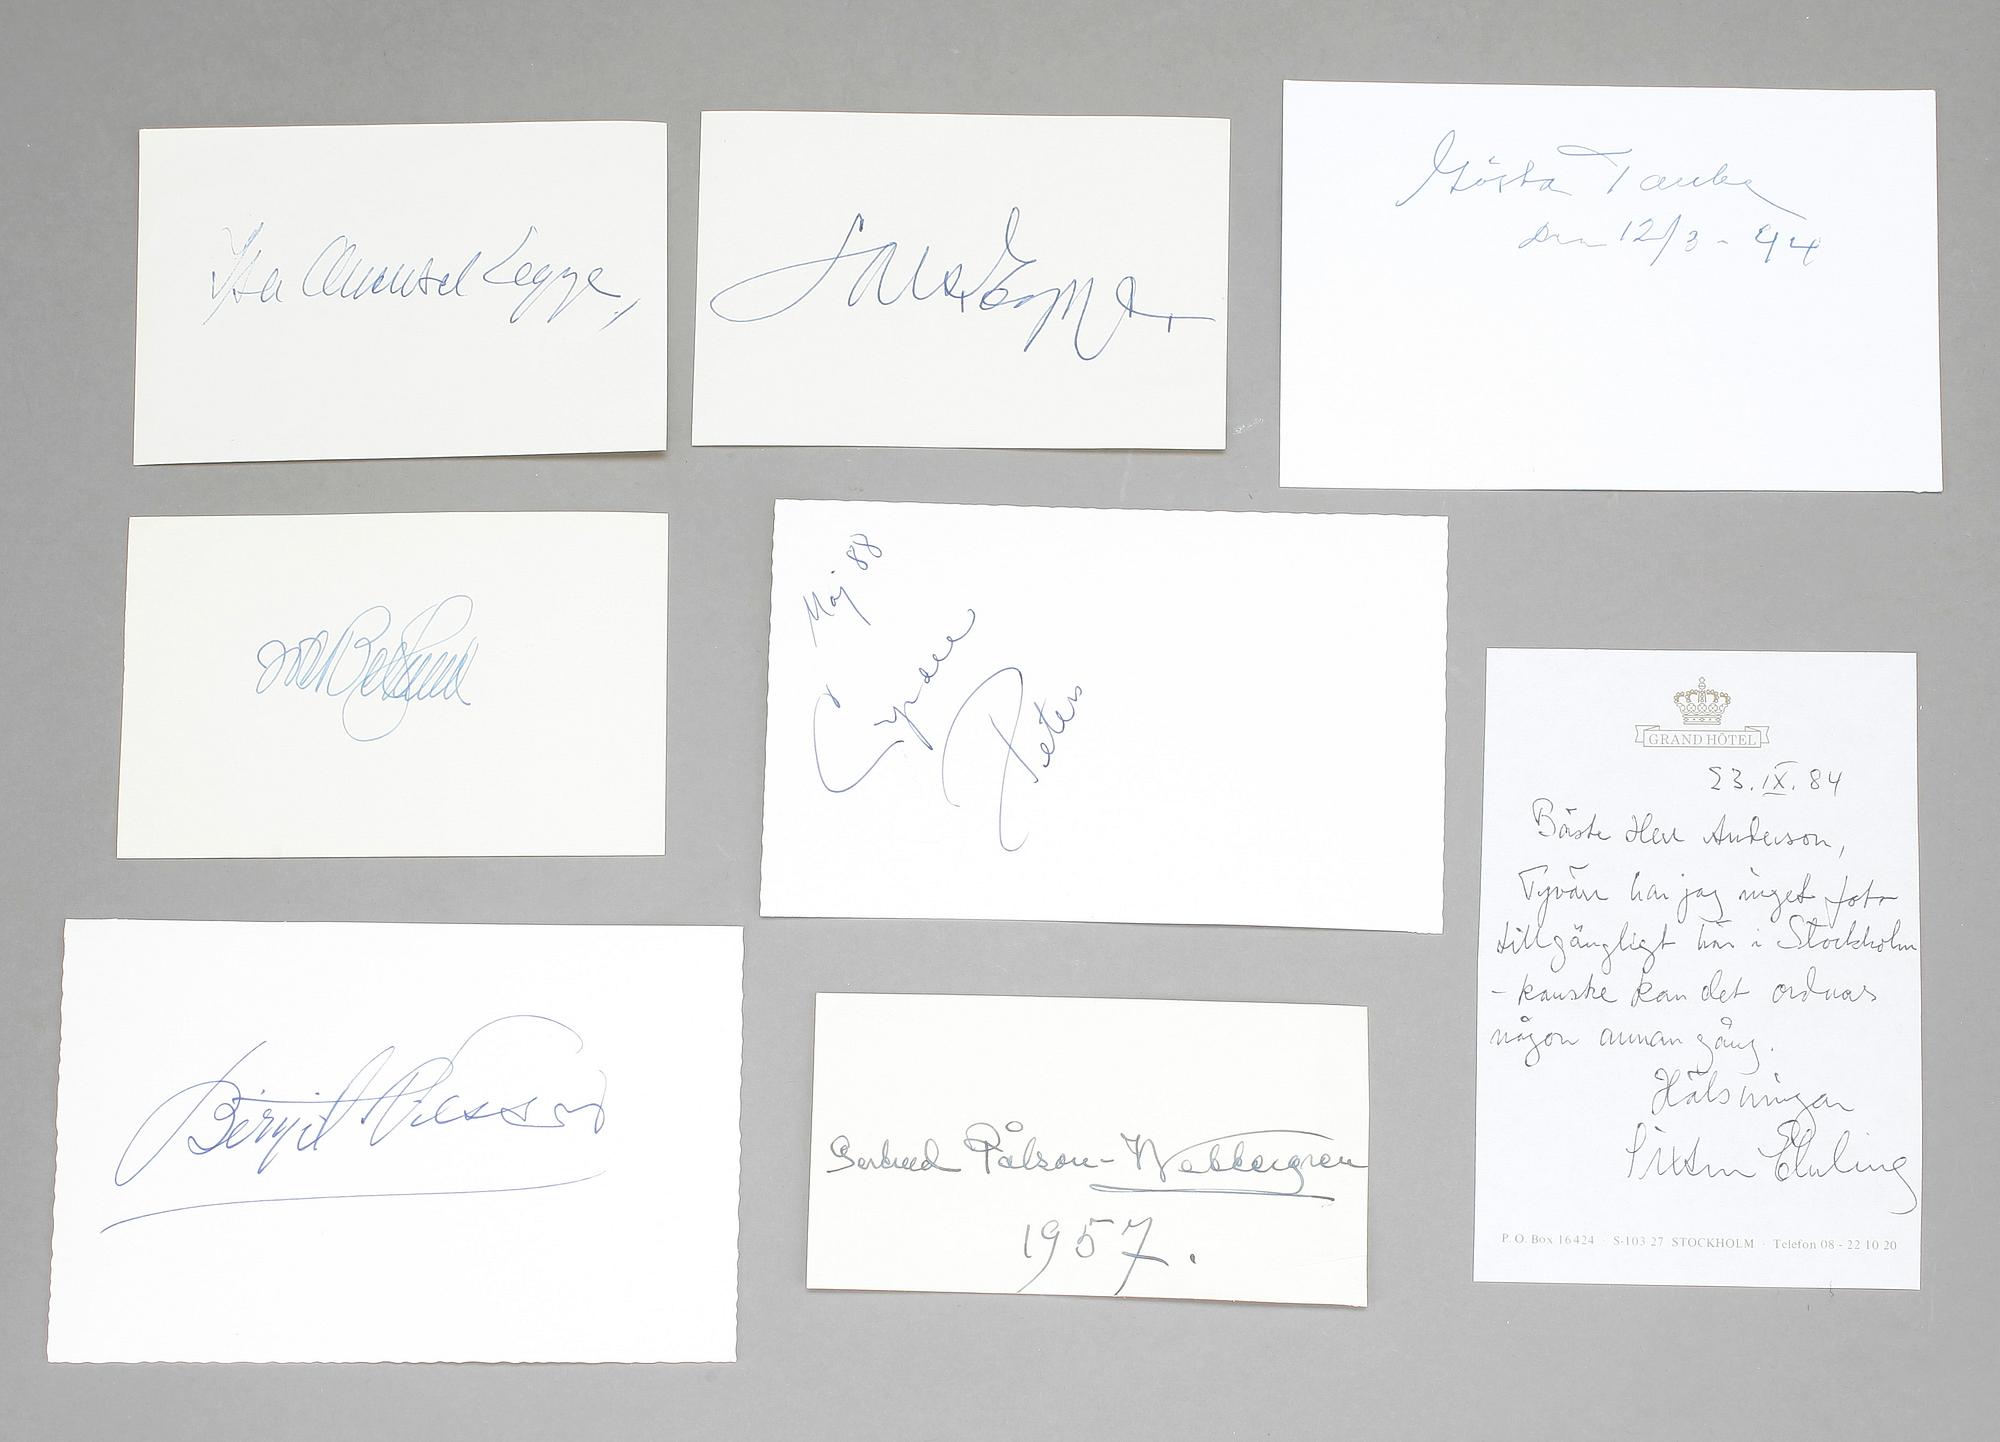 Gösta Taube
den 12/3 - 94
Maj 88
Peters
GRAND HÔTEL
23.IX.84
Bäste Herr Anderson,
Tyvärr har jag inget foto
tillgängligt här i Stockholm
- kanske kan det ordnas
någon annan gång.
Hälsningar
Sixten Ehrling
P.O. Box 16424 · S-103 27 STOCKHOLM · Telefon 08 - 22 10 20
Birgit Nilsson
Gertrud Pålson-Wettergren
1957.